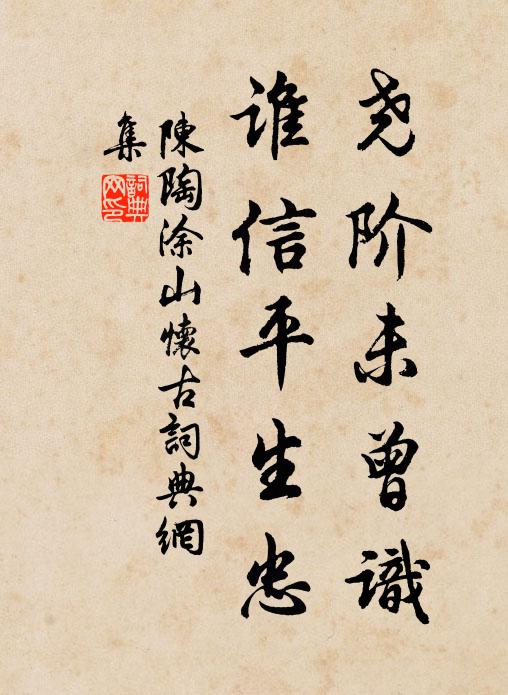 尧阶未曾識
谁信平生忠
陳陶涂山懷古詞典網
集
詞典网印